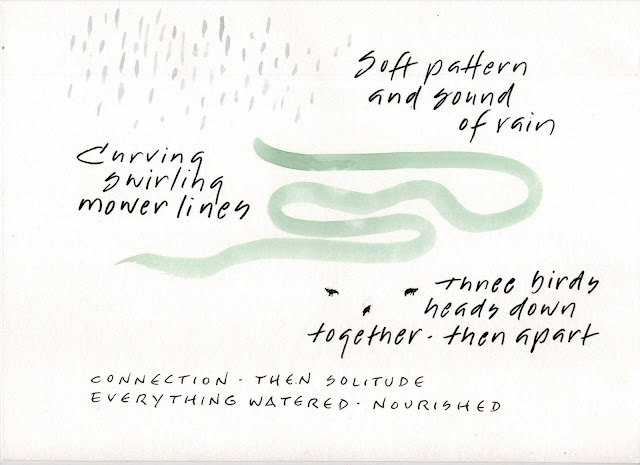 Soft pattern
and sound
of rain
Curving
swirling
mower lines
Three birds
heads down
together · then apart
CONNECTION · THEN SOLITUDE
EVERYTHING WATERED · NOURISHED